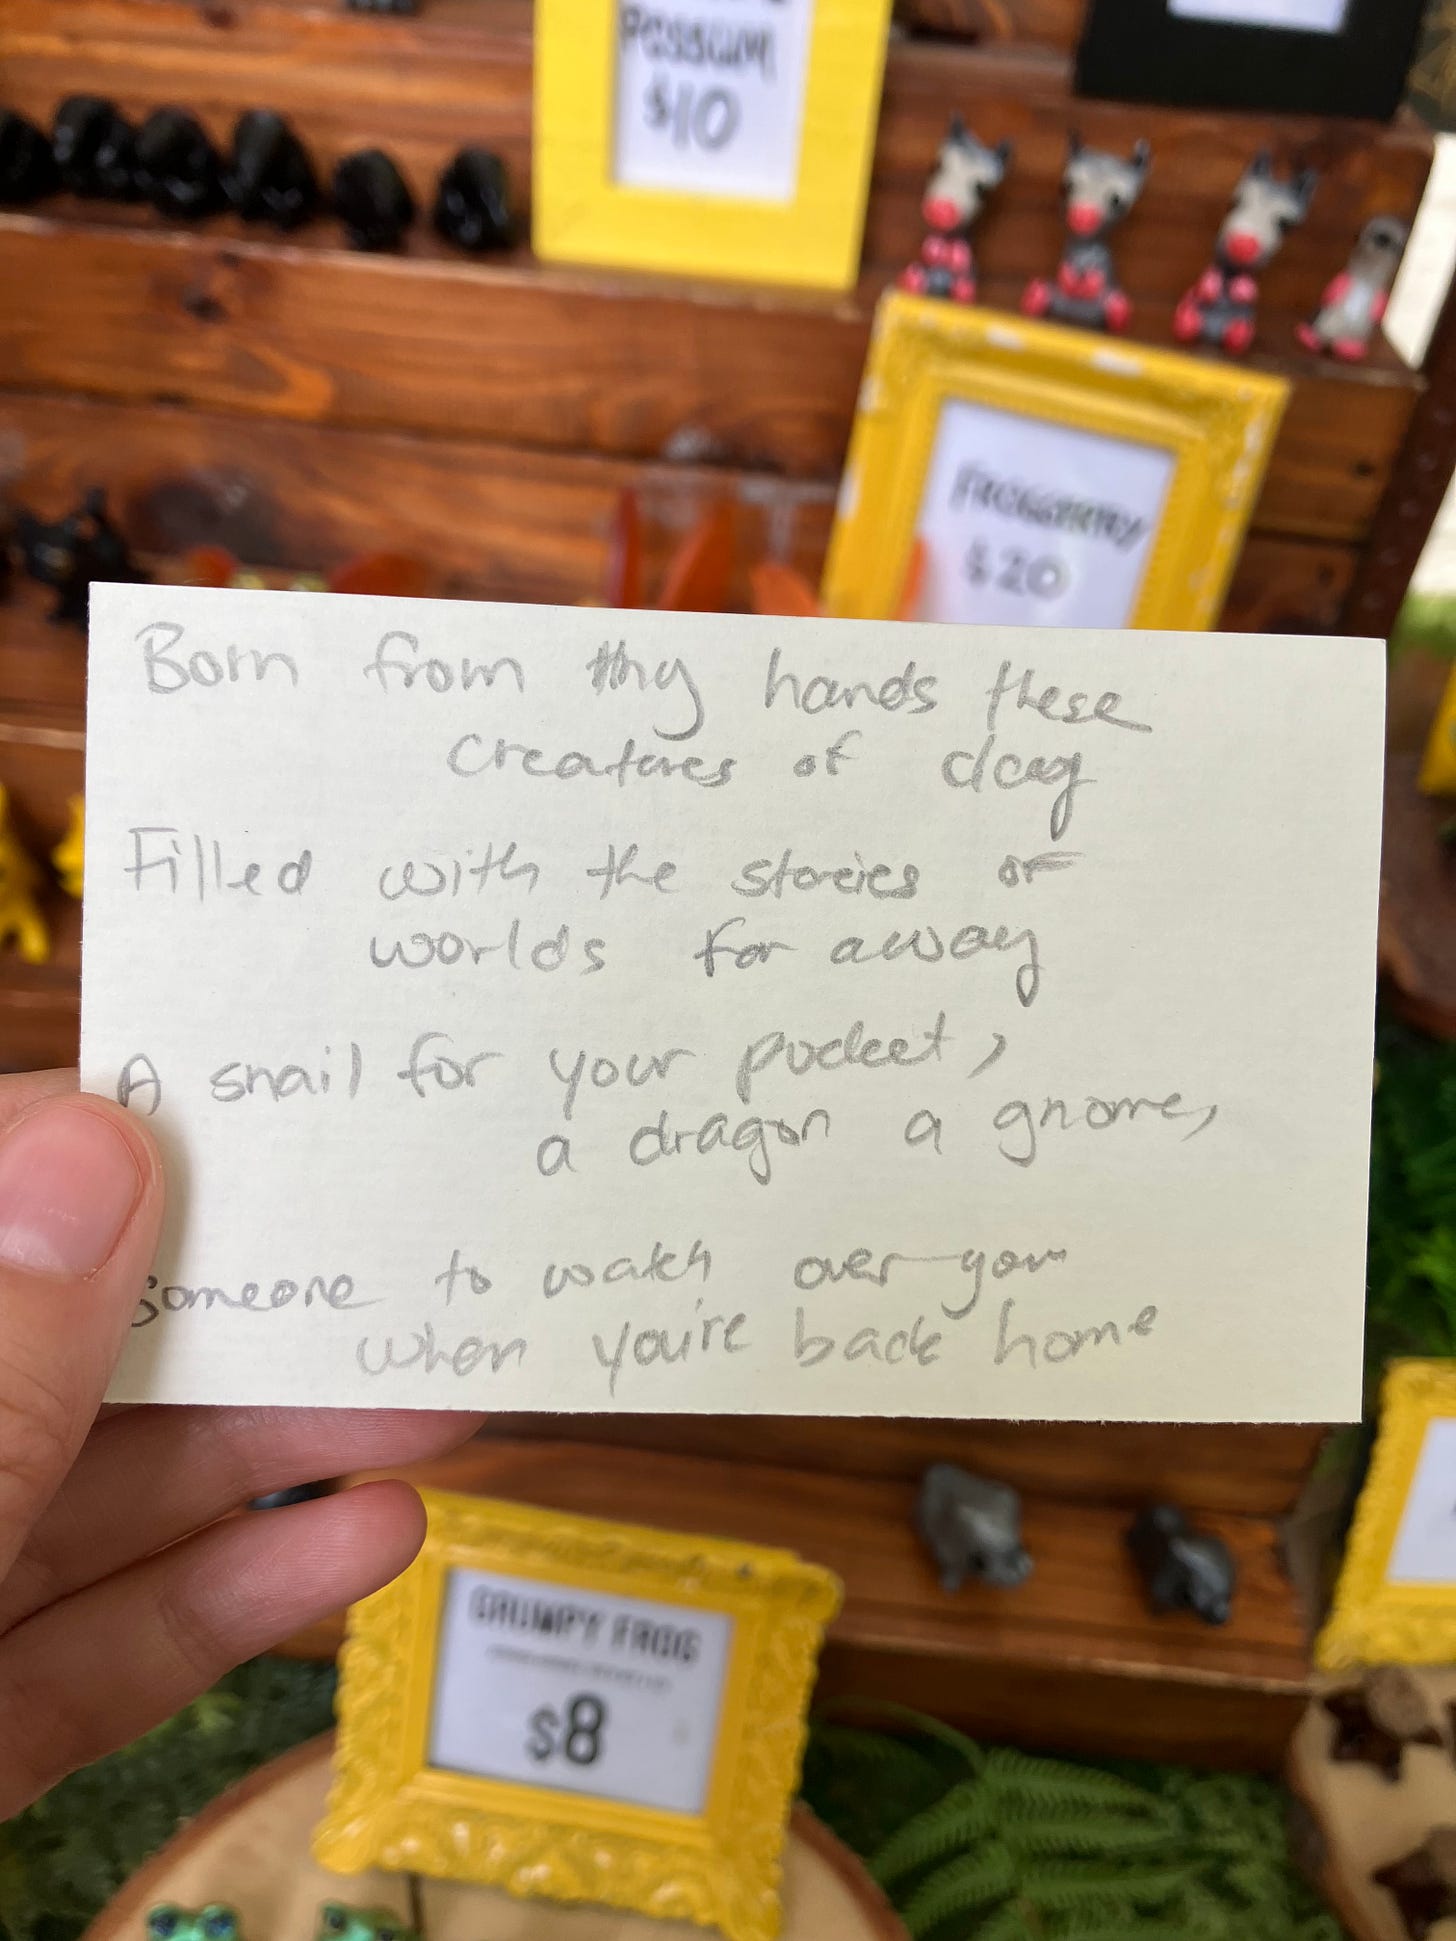 POSSUM
$10
FROGGERTRY
$20
Born from thy hands these
creatures of clay
Filled with the stories of
worlds far away
A snail for your pocket,
a dragon a gnome,
Someone to watch over you
when you're back home
GRUMPY FROG
$8